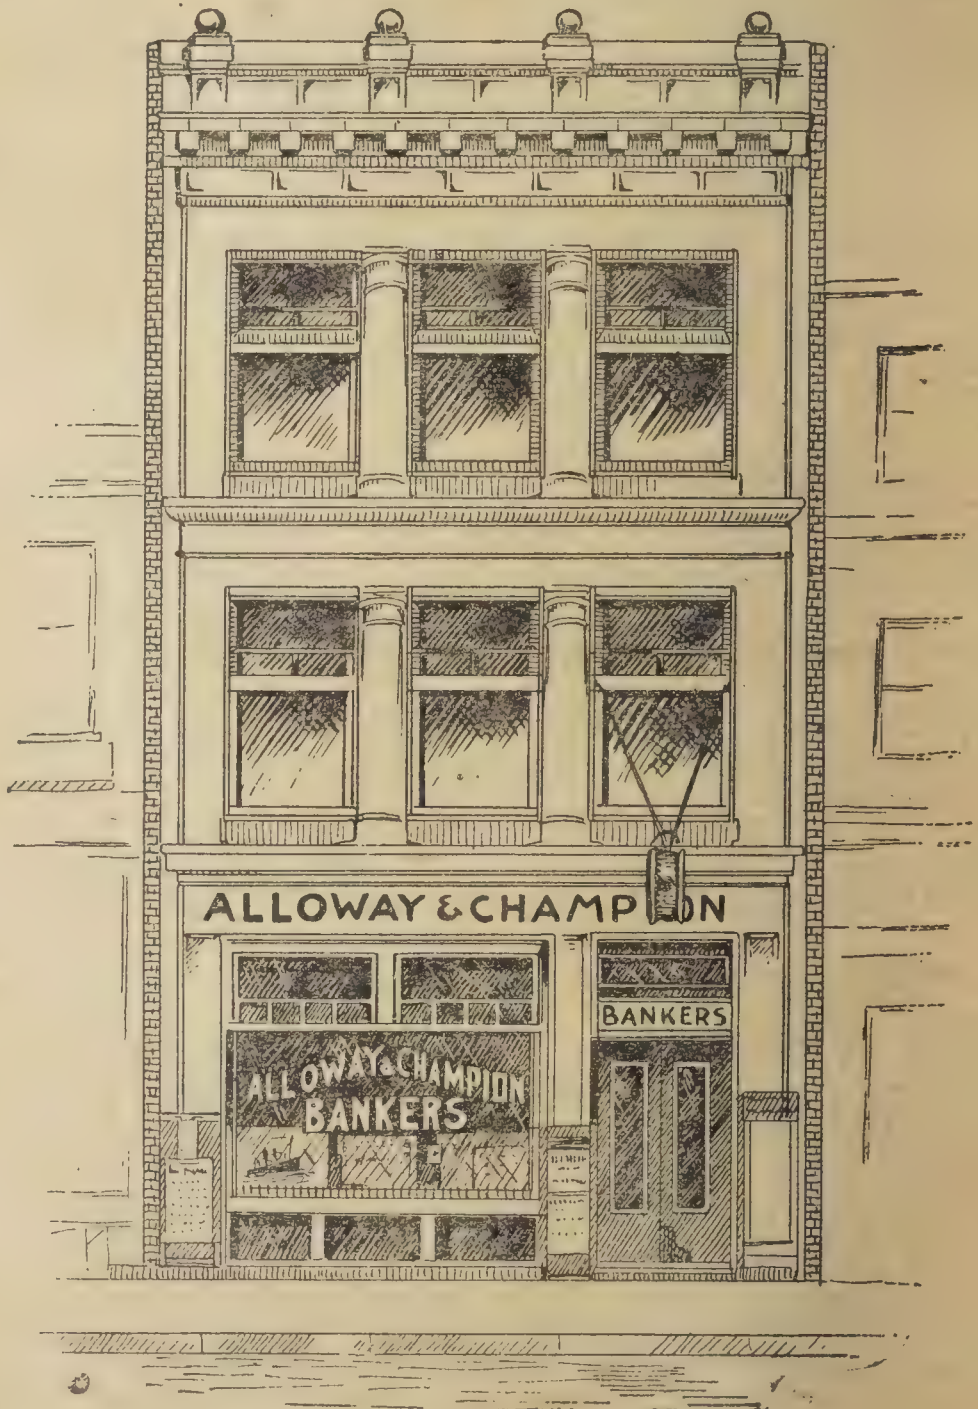 ALLOWAY & CHAMPION
BANKERS
ALLOWAY & CHAMPION
BANKERS